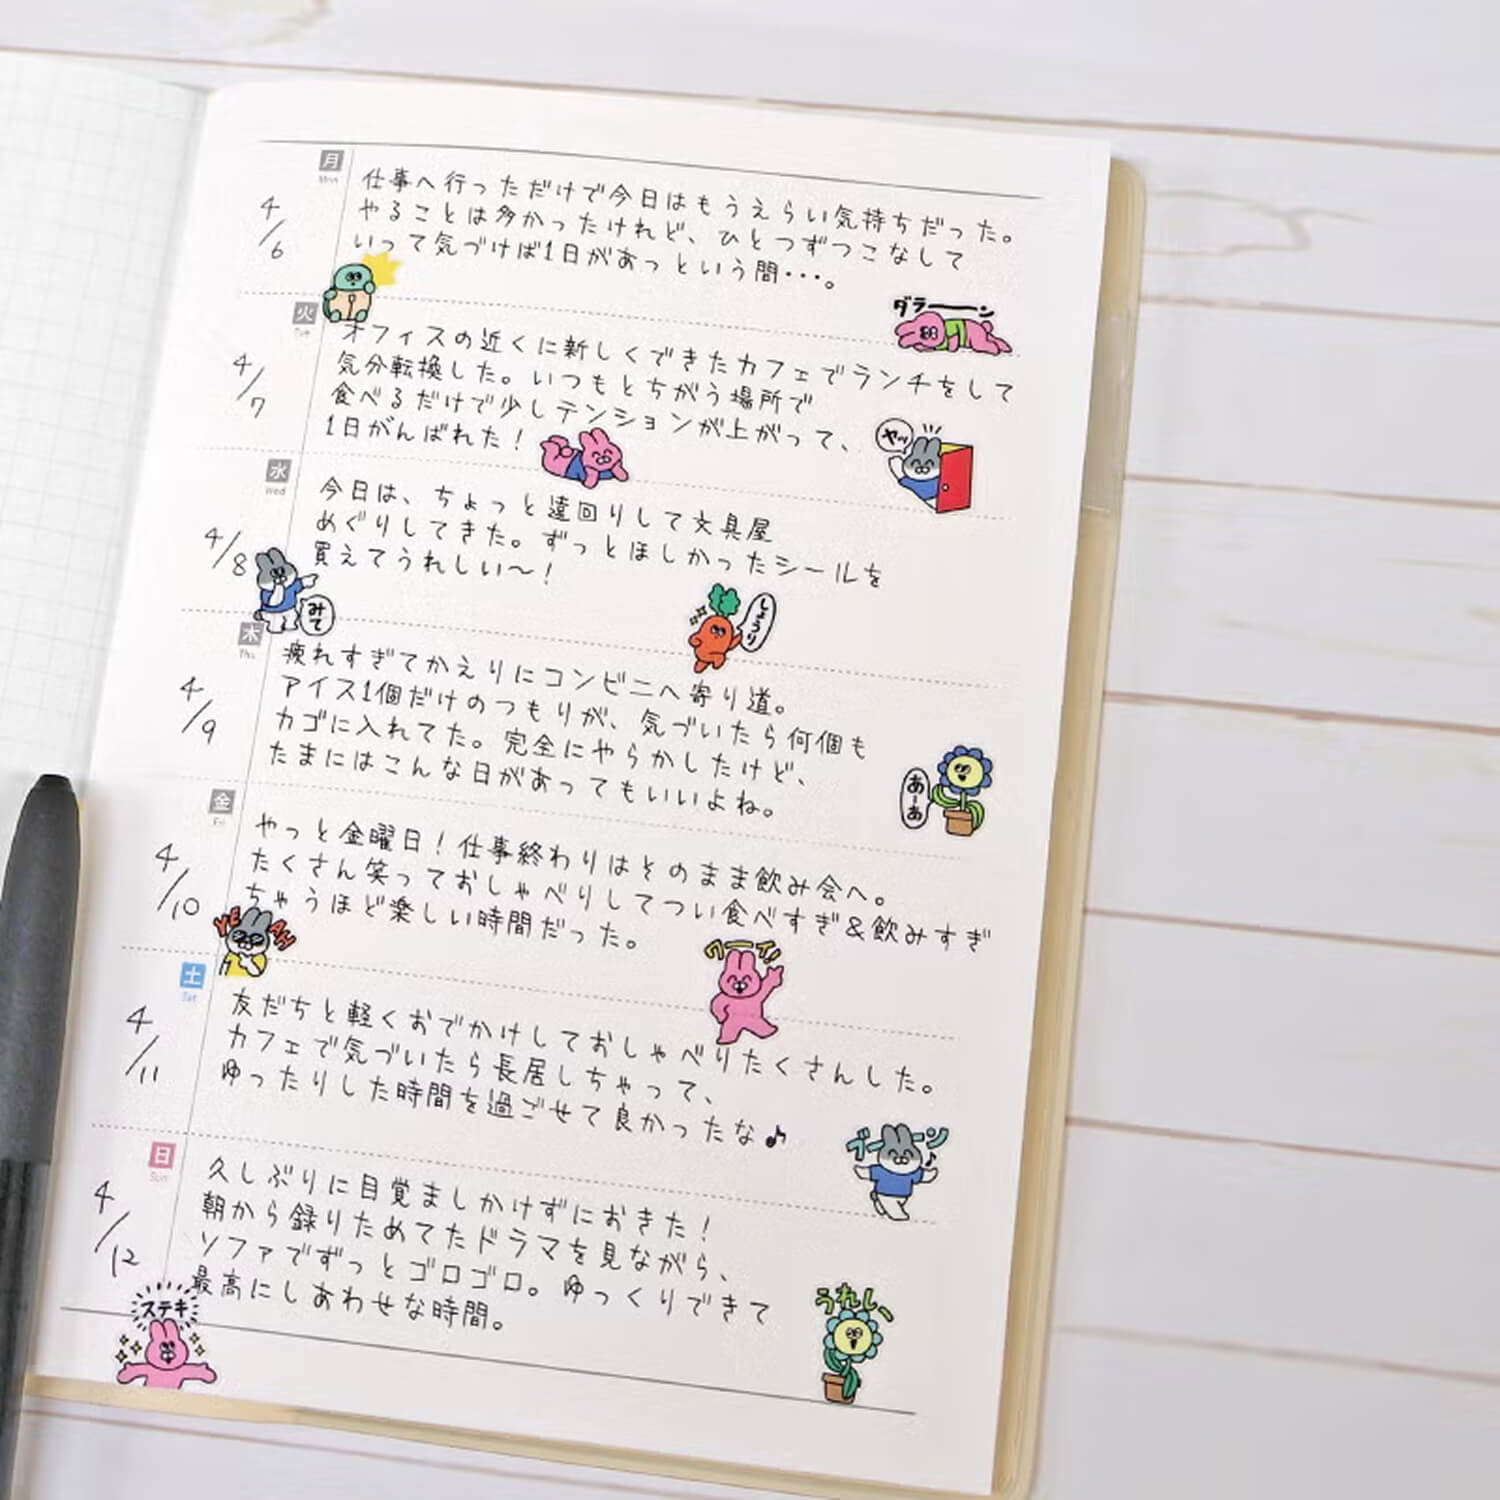 月
Mon
4/6
仕事へ行っただけで今日はもうえらい気持ちだった。
やることは多かったけれど、ひとつずつこなして
いって気づけば1日があっという間・・・。
ダラーーン
火
Tue
4/7
オフィスの近くに新しくできたカフェでランチをして
気分転換した。いつもとちがう場所で
食べるだけで少しテンションが上がって、
1日がんばれた!
ヤッ
水
Wed
4/8
今日は、ちょっと遠回りして文具屋
めぐりしてきた。ずっとほしかったシールを
買えてうれしい〜!
みて
しょうり
木
Thu
4/9
疲れすぎてかえりにコンビニへ寄り道。
アイス1個だけのつもりが、気づいたら何個も
カゴに入れてた。完全にやらかしたけど、
たまにはこんな日があってもいいよね。
あーあ
金
Fri
4/10
やっと金曜日!仕事終わりはそのまま飲み会へ。
たくさん笑っておしゃべりしてつい食べすぎ&飲みすぎ
ちゃうほど楽しい時間だった。
YEAH
ワーイ!
土
Sat
4/11
友だちと軽くおでかけしておしゃべりたくさんした。
カフェで気づいたら長居しちゃって、
ゆったりした時間を過ごせて良かったな♪
ブーーン
日
Sun
4/12
久しぶりに目覚ましかけずにおきた!
朝から録りためてたドラマを見ながら、
ソファでずっとゴロゴロ。ゆっくりできて
最高にしあわせな時間。
ステキ
うれしい